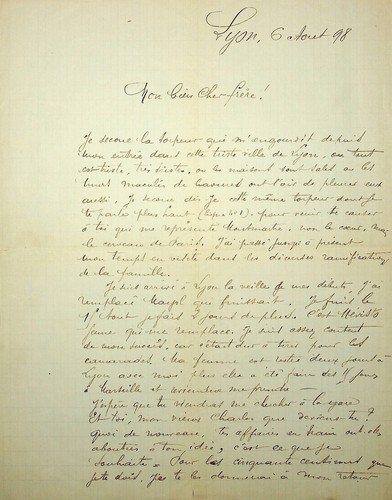 Lyon, 6 Aout 98
Mon bien Cher frère!
Je secoue la torpeur qui m'engourdit depuis
mon entrée dans cette triste ville de Lyon, ou tout
est triste, très triste, ou les maisons sont sales ou les
murs maculés de ont l'air de pleurer eux
aussi. Je secoue dis je cette même torpeur dont je
te parle plus haut (ligne No 1). pour venir te causer
à toi qui me représente Montmartre, non le cœur, mais
le cerveau de Paris. J'ai passé jusqu'a présent
mon temps en visite dans les diverses ramifications
de la famille.
Je suis arrivé à Lyon la veille de mes débuts, j'ai
remplacé Mayol qui finissait. Je finis le
tout, je fais 2 jours de plus. C'est
qui me remplace. Je suis assez content
de mon succès, car c'etait dur à tirer pour les
camarades. Ma femme est restée deux jours à
Lyon avec moi puis elle a été faire ses 15 jours
à Marseille et reviendra me prendre
J'espère que tu viendras me chercher à la gare
Et toi, mon vieux Charles que deviens tu?
Quoi de nouveau, tes affaires en train ont elles
abouties à ton idée, c'est ce que je
souhaite. Pour les cinquante centimes que
je te dois, je te les donnerai à mon retour